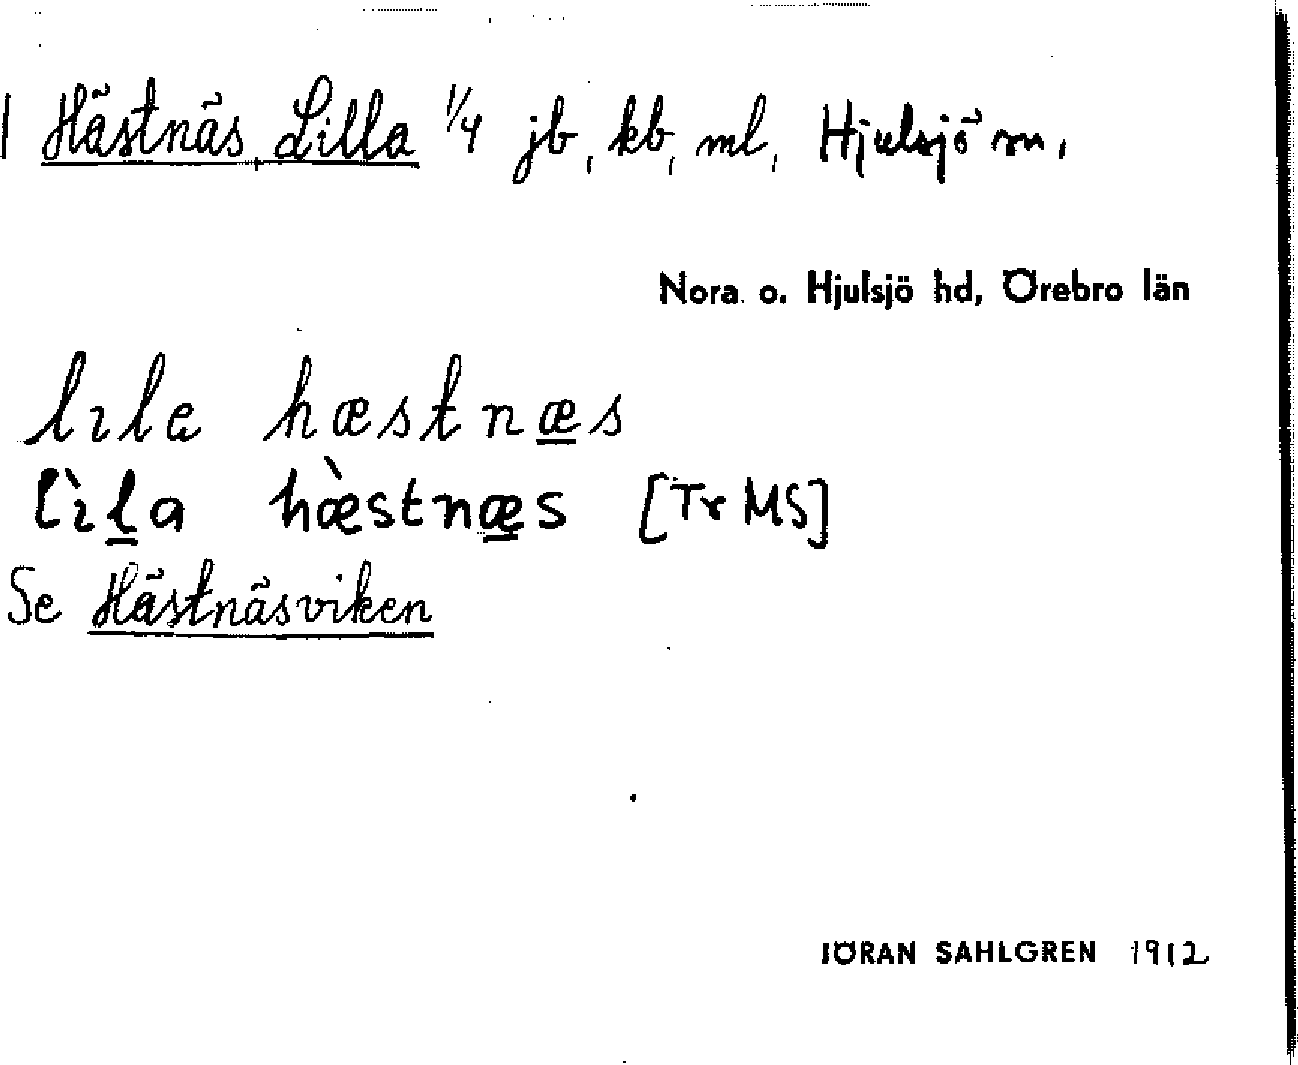 1 Hästnäs, Lilla 1/4 jb, kb, ml, Hjulsjö sn,
Nora o. Hjulsjö hd, Örebro län
lıla hæstnæs
lı̀la hæ̀stnæs [Tr MS]
Se Hästnäsviken
JÖRAN SAHLGREN 1912